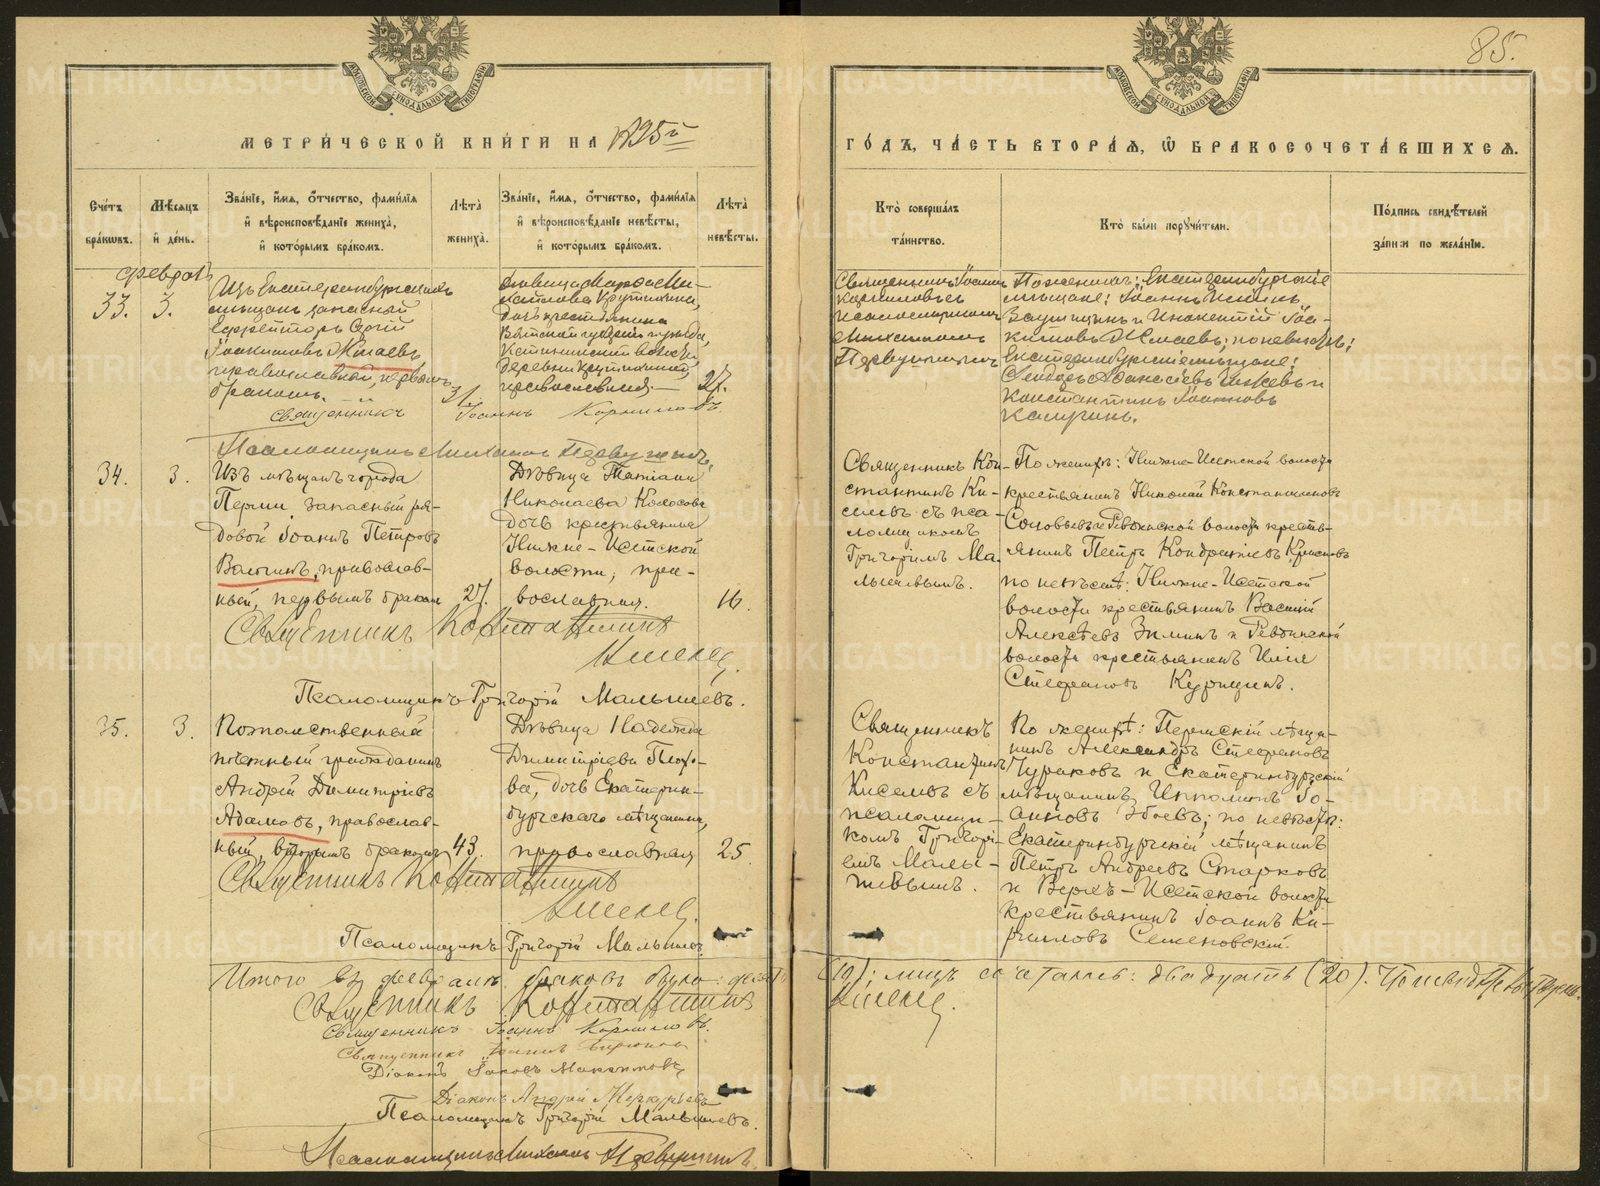 85.
МЕТРИ́ЧЕСКОЙ КНИ́ГИ НА 1895й
ГО́ДЪ, ЧА́СТЬ ВТОРА́Я, Ѡ БРАКОСОЧЕТА́ВШИХСЯ.
Сче́тъ бра́кѡвъ.
Мѣ́сяцъ и҆ де́нь.
Зва́нїе, и҆́мя, ѻ҆́тчество, фами́лїя
и҆ вѣроисповѣ́данїе жениха̀,
и҆ кото́рымъ бра́комъ.
Лѣ́та жениха̀.
Зва́нїе, и҆́мя, ѻ҆́тчество, фами́лїя
и҆ вѣроисповѣ́данїе невѣ́сты,
и҆ кото́рымъ бра́комъ.
Лѣ́та невѣ́сты.
Кто̀ соверша́лъ
та́инство.
Кто̀ бы́ли поручи́тели.
По́дпись свидѣ́телей
за́писи по жела́нїю.
Февраль
33.
3.
Изъ Екатеринбургскихъ
мѣщанъ запасный
ефрейторъ Сергій
Іоакимовъ
православный, первымъ
бракомъ.
31.
дѣвица Марѳа Ми-
хайлова Крутихина,
дочь крестьянина
Вятской губерніи и уѣзда,
волости,
деревни
православная.
27.
Священникъ Іоаннъ
Корниловъ съ
псаломщикомъ
Михаиломъ
Первушинымъ
По женихѣ: Екатеринбургскіе
мѣщане: Іоаннъ
и Инокентій Іоа-
кимовъ по невѣстѣ:
Екатеринбургскіе мѣщане:
Ѳеодоръ Аѳанасіевъ и
Константинъ Іоанновъ
Священникъ Іоаннъ Корниловъ.
Псаломщикъ Михаилъ Первушинъ.
34.
3.
Изъ мѣщанъ города
Перми, запасный ря-
довой Іоаннъ Петровъ
православ-
ный, первымъ бракомъ
27.
Дѣвица Татіана
Николаева Колосова
дочь крестьянина
Нижне-Исетской
волости, пра-
вославная.
16.
Священникъ Кон-
стантинъ Ки-
селевъ съ пса-
ломщикомъ
Григоріемъ Ма-
лышевымъ.
По женихѣ: Нижне-Исетской волости
крестьянинъ Николай Константиновъ
Соловьевъ и Ревдинской волости кресть-
янинъ Петръ Кондратіевъ
по невѣстѣ: Нижне-Исетской
волости крестьянинъ Василій
Алексѣевъ Зиминъ и Ревдинской
волости крестьянинъ Илія
Стефановъ Курицинъ.
Священникъ Константинъ
Киселевъ.
Псаломщикъ Григорій Малышевъ.
35.
3.
Потомственный
почетный гражданинъ
Андрей Димитріевъ
Адамовъ, православ-
ный, вторымъ бракомъ
43.
Дѣвица Надежда
Димитріева
дочь Екатерин-
бургскаго мѣщанина,
православная
25.
Священникъ
Константинъ
Киселевъ съ
псаломщи-
комъ Григорі-
емъ Малы-
шевымъ.
По женихѣ: Пермскій мѣща-
нинъ Александръ Стефановъ
Чураковъ и Екатеринбургскій
мѣщанинъ Ипполитъ Іо-
анновъ Зboевъ; по невѣстѣ:
Екатеринбургскій мѣщанинъ
Петръ Андреевъ Старковъ
и Верхъ-Исетской волости
крестьянинъ Іоаннъ Ки-
рилловъ Семеновскій.
Священникъ Константинъ
Киселевъ.
Псаломщикъ Григорій Малышевъ.
Итого въ февралѣ браковъ было: десять (10); лицъ сочеталось: двадцать (20).
Священникъ Константинъ Киселевъ.
Священникъ Іоаннъ Корниловъ.
Священникъ Іоаннъ
Діаконъ Іаковъ Максимовъ
Діаконъ Андрей Меркурьевъ
Псаломщикъ Григорій Малышевъ.
Псаломщикъ Михаилъ Первушинъ.
METRIKI.GASO-URAL.RU